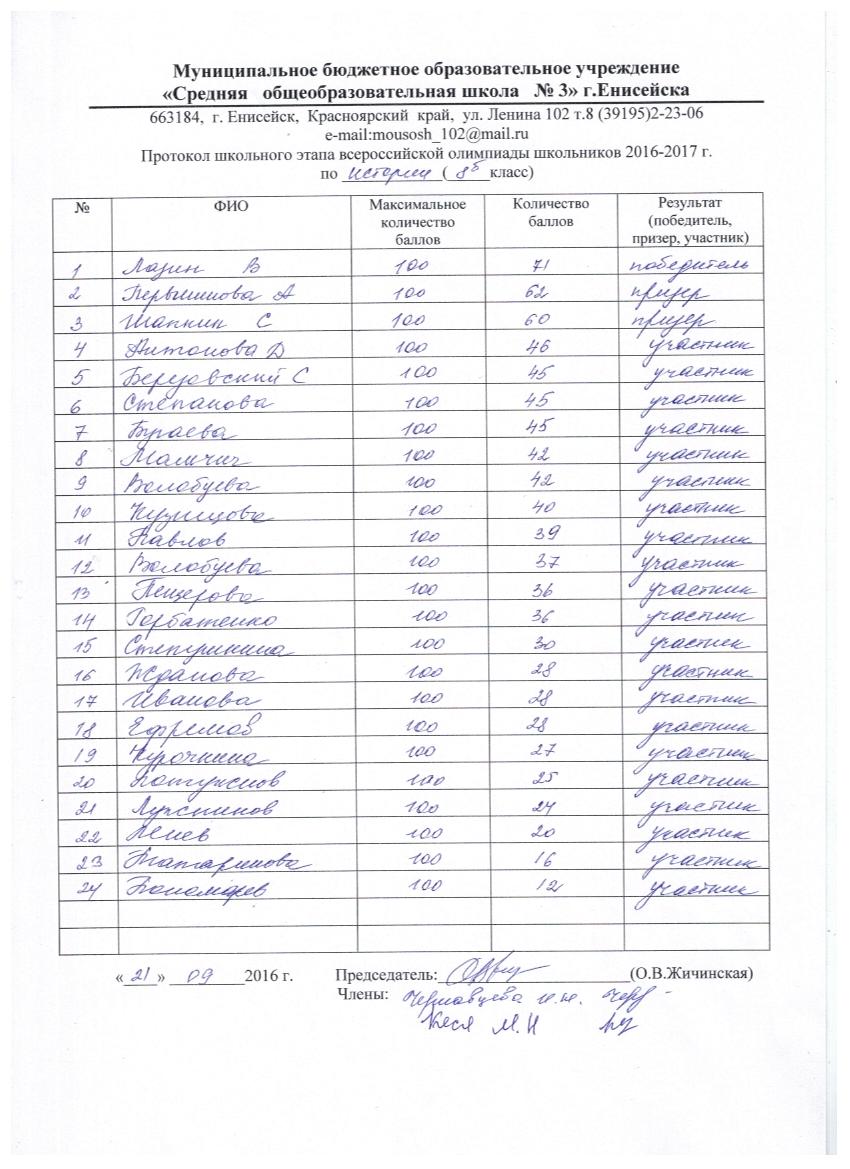 Муниципальное бюджетное образовательное учреждение
«Средняя общеобразовательная школа № 3» г.Енисейска
663184, г. Енисейск, Красноярский край, ул. Ленина 102 т.8 (39195)2-23-06
e-mail:mousosh_102@mail.ru
Протокол школьного этапа всероссийской олимпиады школьников 2016-2017 г.
по истории ( 8б класс)
№ ФИО Максимальное количество баллов Количество баллов Результат (победитель, призер, участник)
1 Лазин В 100 71 победитель
2 Первышова А 100 62 призер
3 Шапкин С 100 60 призер
4 Антонова Д 100 46 участник
5 Березовский С 100 45 участник
6 Степанова 100 45 участник
7 Бураева 100 45 участник
8 Мамчич 100 42 участник
9 Волобуева 100 42 участник
10 Кузнецова 100 40 участник
11 Павлов 100 39 участник
12 Волобуева 100 37 участник
13 Пещерова 100 36 участник
14 Горбатенко 100 36 участник
15 100 30 участник
16 Жданова 100 28 участник
17 Иванова 100 28 участник
18 Ефремов 100 28 участник
19 Курочкина 100 27 участник
20 100 25 участник
21 100 24 участник
22 100 20 участник
23 Татаринова 100 16 участник
24 Пономарев 100 12 участник
« 21 » 09 2016 г. Председатель: (О.В.Жичинская)
Члены:
М.Н